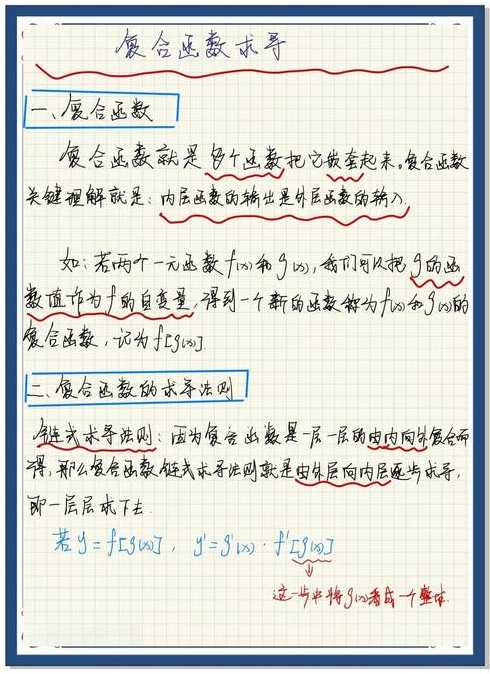 复合函数求导
一、复合函数
复合函数就是多个函数把它嵌套起来。复合函数
关键理解就是：内层函数的输出是外层函数的输入
如：若两个一元函数f(x)和g(x)，我们可以把g的函
数值作为f的自变量，得到一个新的函数称为f(x)和g(x)的
复合函数，记为f[g(x)]
二、复合函数的求导法则
链式求导法则：因为复合函数是一层一层的由内向外复合而
得，那么复合函数链式求导法则就是由外层向内层逐步求导，
即一层层求下去.
若y=f[g(x)]，y'=g'(x)·f'[g(x)]
这一步中将g(x)看成一个整体.